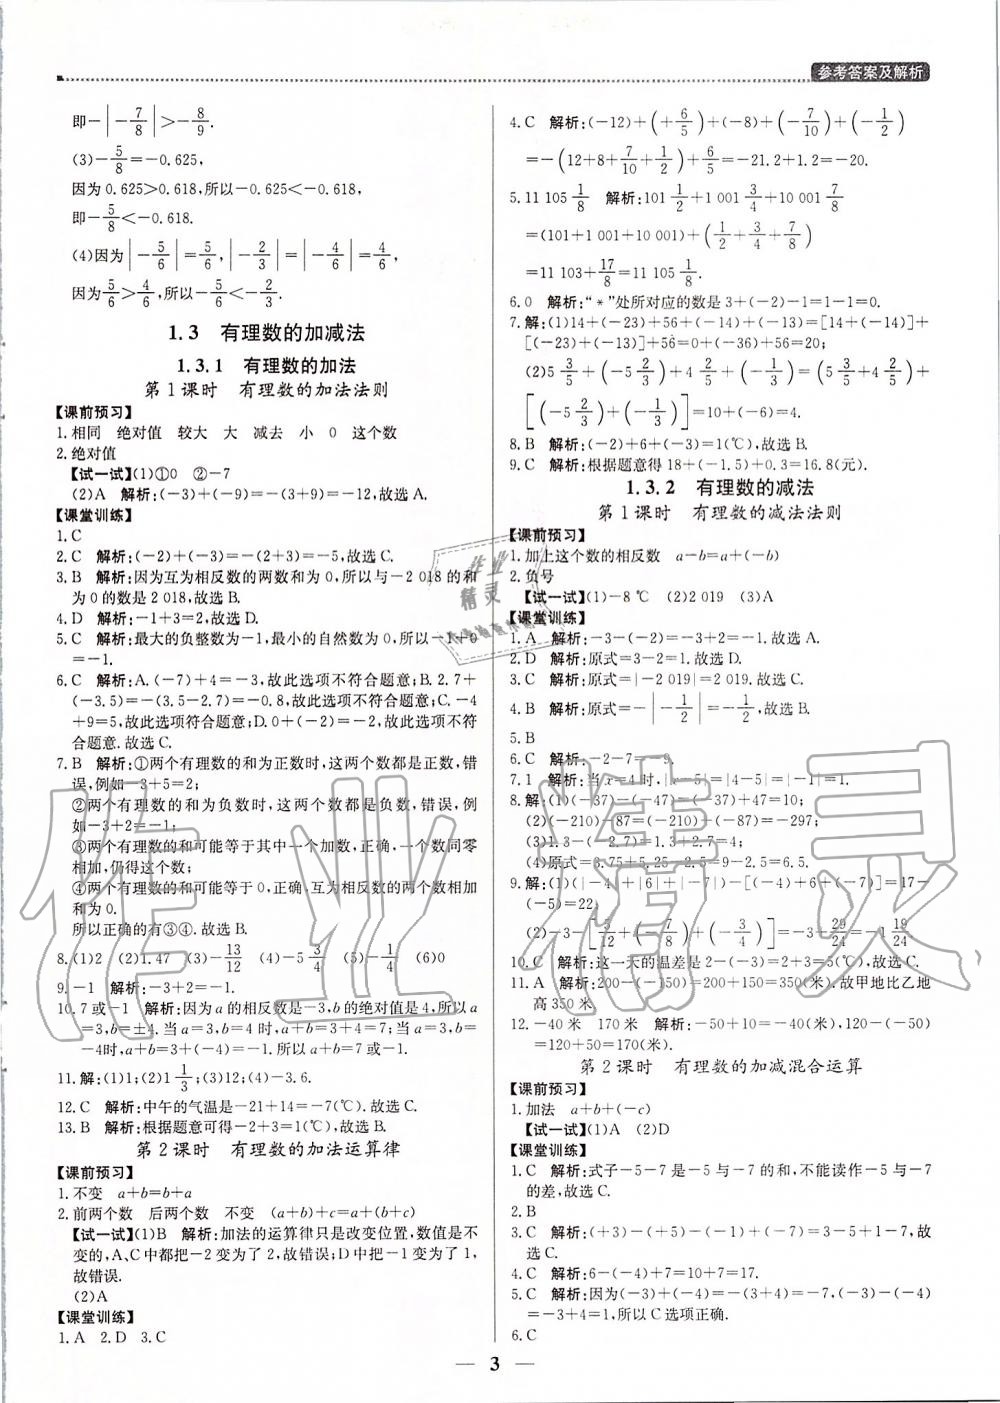 参考答案及解析
即-|-7/8|>-8/9.
(3)-5/8=-0.625,
因为0.625>0.618,所以-0.625<-0.618,
即-5/8<-0.618.
(4)因为|-5/6|=5/6,|-2/3|=|-4/6|=4/6,
因为5/6>4/6,所以-5/6<-2/3.
1.3 有理数的加减法
1.3.1 有理数的加法
第1课时 有理数的加法法则
【课前预习】
1.相同 绝对值 较大 大 减去 小 0 这个数
2.绝对值
【试一试】(1)①0 ②-7
(2)A 解析:(-3)+(-9)=-(3+9)=-12,故选A.
【课堂训练】
1.C
2.C 解析:(-2)+(-3)=-(2+3)=-5,故选C.
3.B 解析:因为互为相反数的两数和为0,所以与-2 018的和
为0的数是2 018,故选B.
4.D 解析:-1+3=2,故选D.
5.C 解析:最大的负整数为-1,最小的自然数为0,所以-1+0
=-1.
6.C 解析:A.(-7)+4=-3,故此选项不符合题意;B.2.7+
(-3.5)=-(3.5-2.7)=-0.8,故此选项不符合题意;C.-4
+9=5,故此选项符合题意;D.0+(-2)=-2,故此选项不符
合题意.故选C.
7.B 解析:①两个有理数的和为正数时,这两个数都是正数,错
误,例如-3+5=2;
②两个有理数的和为负数时,这两个数都是负数,错误,例
如-3+2=-1;
③两个有理数的和可能等于其中一个加数,正确,一个数同零
相加,仍得这个数;
④两个有理数的和可能等于0,正确,互为相反数的两个数相加
和为0.
所以正确的有③④.故选B.
8.(1)2 (2)1.47 (3)-13/12 (4)-5 3/4 (5)-1/4 (6)0
9.-1 解析:-3+2=-1.
10.7或-1 解析:因为a的相反数是-3,b的绝对值是4,所以a
=3,b=±4.当a=3,b=4时,a+b=3+4=7;当a=3,b=
-4时,a+b=3+(-4)=-1.所以7或-1.
11.解:(1)1;(2)1 1/3;(3)12;(4)-3.6.
12.C 解析:中午的气温是-21+14=-7(℃).故选C.
13.B 解析:根据题意可得-2+3=1(℃),故选B.
第2课时 有理数的加法运算律
【课前预习】
1.不变 a+b=b+a
2.前两个数 后两个数 不变 (a+b)+c=a+(b+c)
【试一试】(1)B 解析:加法的运算律只是改变位置,数值是不
变的,A、C中都把-2变为了2,故错误;D中把-1变为了1,
故错误.
(2)A
【课堂训练】
1.A 2.D 3.C
4.C 解析:(-12)+(+6/5)+(-8)+(-7/10)+(-1/2)
=-(12+8+7/10+1/2)+6/5=-21.2+1.2=-20.
5.11 105 1/8 解析:101 1/2+1 001 3/4+10 001 7/8
=(101+1 001+10 001)+(1/2+3/4+7/8)
=11 103+17/8=11 105 1/8.
6.0 解析:“*”处所对应的数是3+(-2)-1=1-1=0.
7.解:(1)14+(-23)+56+(-14)+(-13)=[14+(-14)]+
[(-23)+(-13)]+56=0+(-36)+56=20;
(2)5 3/5+(-5 2/3)+4 2/5+(-1/3)=(5 3/5+4 2/5)+
[(-5 2/3)+(-1/3)]=10+(-6)=4.
8.B 解析:(-2)+6+(-3)=1(℃),故选B.
9.C 解析:根据题意得18+(-1.5)+0.3=16.8(元).
1.3.2 有理数的减法
第1课时 有理数的减法法则
【课前预习】
1.加上这个数的相反数 a-b=a+(-b)
2.负号
【试一试】(1)-8℃ (2)2 019 (3)A
【课堂训练】
1.A 解析:-3-(-2)=-3+2=-1.故选A.
2.D 解析:原式=3-2=1.故选D.
3.C 解析:原式=|-2 019|=2 019.故选C.
4.B 解析:原式=-|-1/2|=-1/2,故选B.
5.B
6.C 解析:-2-7=-9.
7.1 解析:当x=4时,|x-5|=|4-5|=|-1|=1.
8.解:(1)(-37)-(-47)=(-37)+47=10;
(2)(-210)-87=(-210)+(-87)=-297;
(3)1.3-(-2.7)=1.3+2.7=4;
(4)原式=3.75+5.25-2.5=9-2.5=6.5.
9.解:(1)(|-4|+|6|+|-7|)-[(-4)+6+(-7)]=17-
(-5)=22;
(2)-3-[5/12+(-7/8)+(-3/4)]=-3+29/24=-1 19/24
10.C 解析:这一天的温差是2-(-3)=2+3=5(℃),故选C.
11.A 解析:200-(-150)=200+150=350(米).故甲地比乙地
高350米.
12.-40米 170米 解析:-50+10=-40(米),120-(-50)
=120+50=170(米).
第2课时 有理数的加减混合运算
【课前预习】
1.加法 a+b+(-c)
【试一试】(1)A (2)D
【课堂训练】
1.C 解析:式子-5-7是-5与-7的和,不能读作-5与-7
的差,故选C.
2.B
3.C 解析:(+3)-(+5)-(-1)+(-7)=3-5+1-7,故
选C.
4.C 解析:6-(-4)+7=10+7=17.
5.C 解析:因为(-3)+(-4)=-(3+4)=-7,(-3)-(-4)
=-3+4=1,所以C选项正确.
6.C
3
作业
精灵
作业精灵